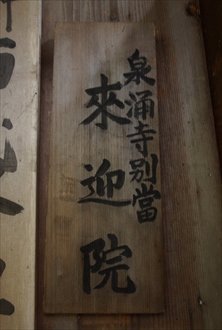 泉涌寺別當
來迎院